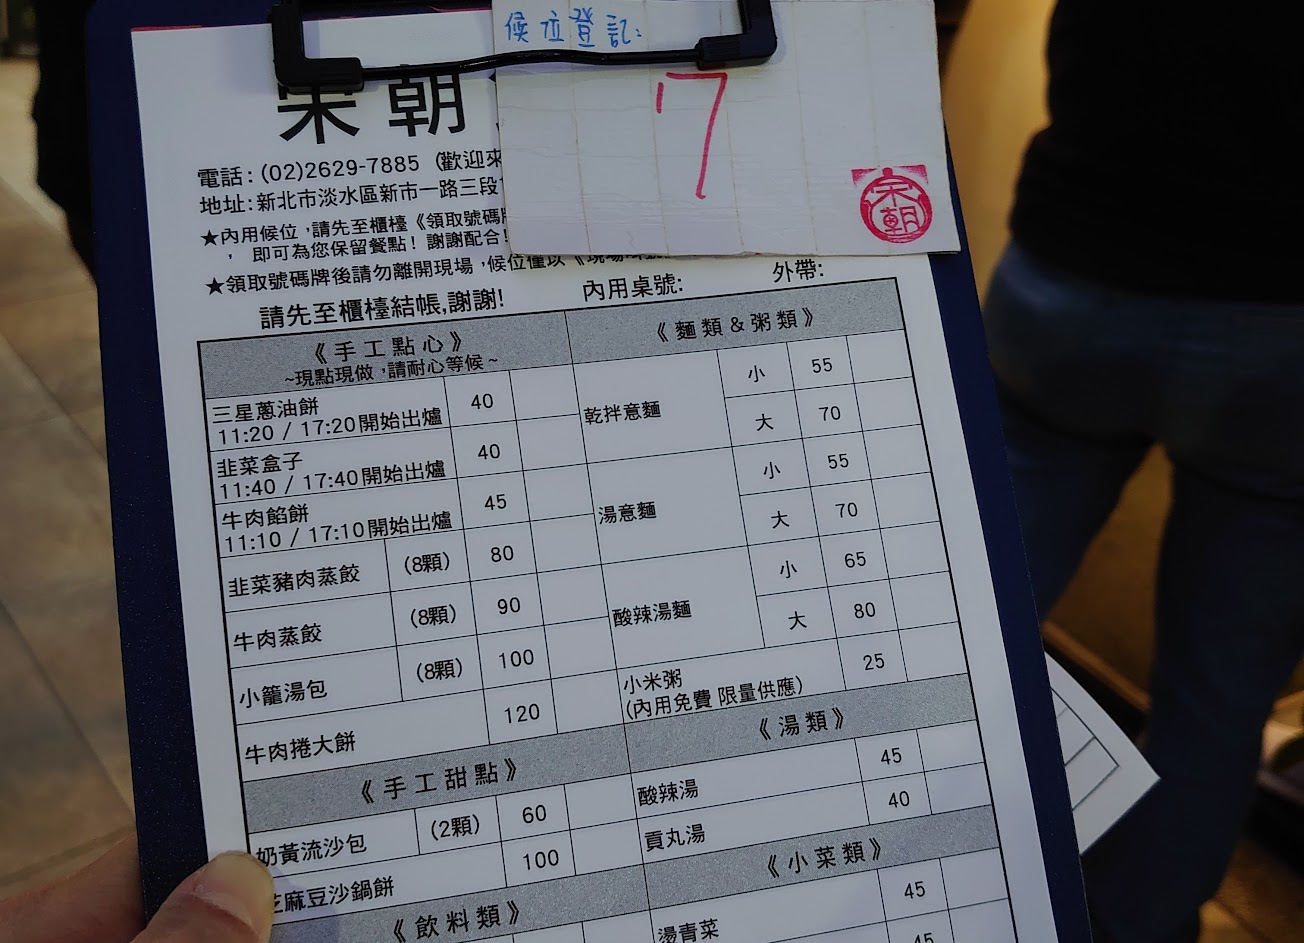 候位登記:
7
宋朝
宋朝
電話: (02)2629-7885 (歡迎來
地址: 新北市淡水區新市一路三段
★內用候位,請先至櫃檯《領取號碼牌
, 即可為您保留餐點! 謝謝配合!
★領取號碼牌後請勿離開現場,候位僅以《現場
請先至櫃檯結帳,謝謝! 內用桌號: 外帶:
《手工點心》
~現點現做,請耐心等候~
三星蔥油餅 40
11:20 / 17:20開始出爐
韭菜盒子 40
11:40 / 17:40開始出爐
牛肉餡餅 45
11:10 / 17:10開始出爐
韭菜豬肉蒸餃 (8顆) 80
牛肉蒸餃 (8顆) 90
小籠湯包 (8顆) 100
牛肉捲大餅 120
《手工甜點》
奶黃流沙包 (2顆) 60
芝麻豆沙鍋餅 100
《飲料類》
《麵類&粥類》
乾拌意麵 小 55
大 70
湯意麵 小 55
大 70
酸辣湯麵 小 65
大 80
小米粥 25
(內用免費 限量供應)
《湯類》
酸辣湯 45
貢丸湯 40
《小菜類》
燙青菜 45
45